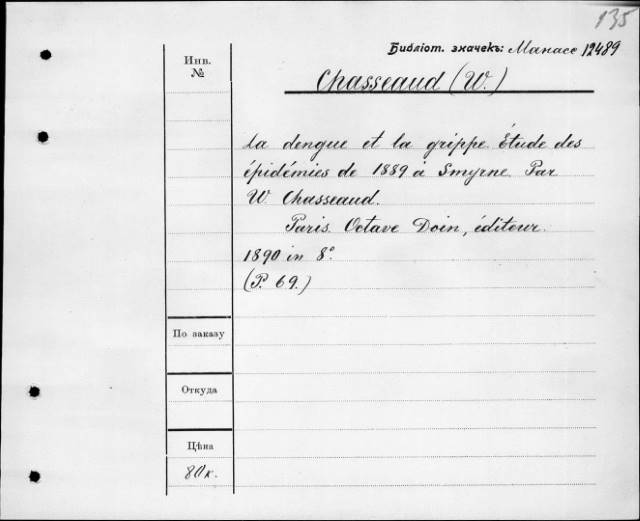 135
Библіот. значекъ: Манасс 12489
Инв.
№
Chasseaud (W.)
La dengue et la grippe. Étude des
épidémies de 1889 à Smyrne. Par
W. Chasseaud.
Paris. Octave Doin, éditeur.
1890 in 8°.
(P. 69.)
По заказу
Откуда
Цѣна
80 к.